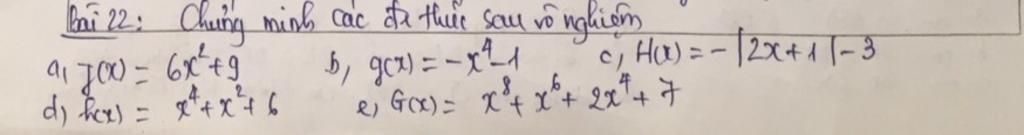 Bài 22: Chứng minh các đa thức sau vô nghiệm
a, f(x) = 6x² + 9 b, g(x) = -x⁴ - 1 c, H(x) = - |2x + 1| - 3
d) h(x) = x⁴ + x² + 6 e) G(x) = x⁸ + x⁶ + 2x⁴ + 7